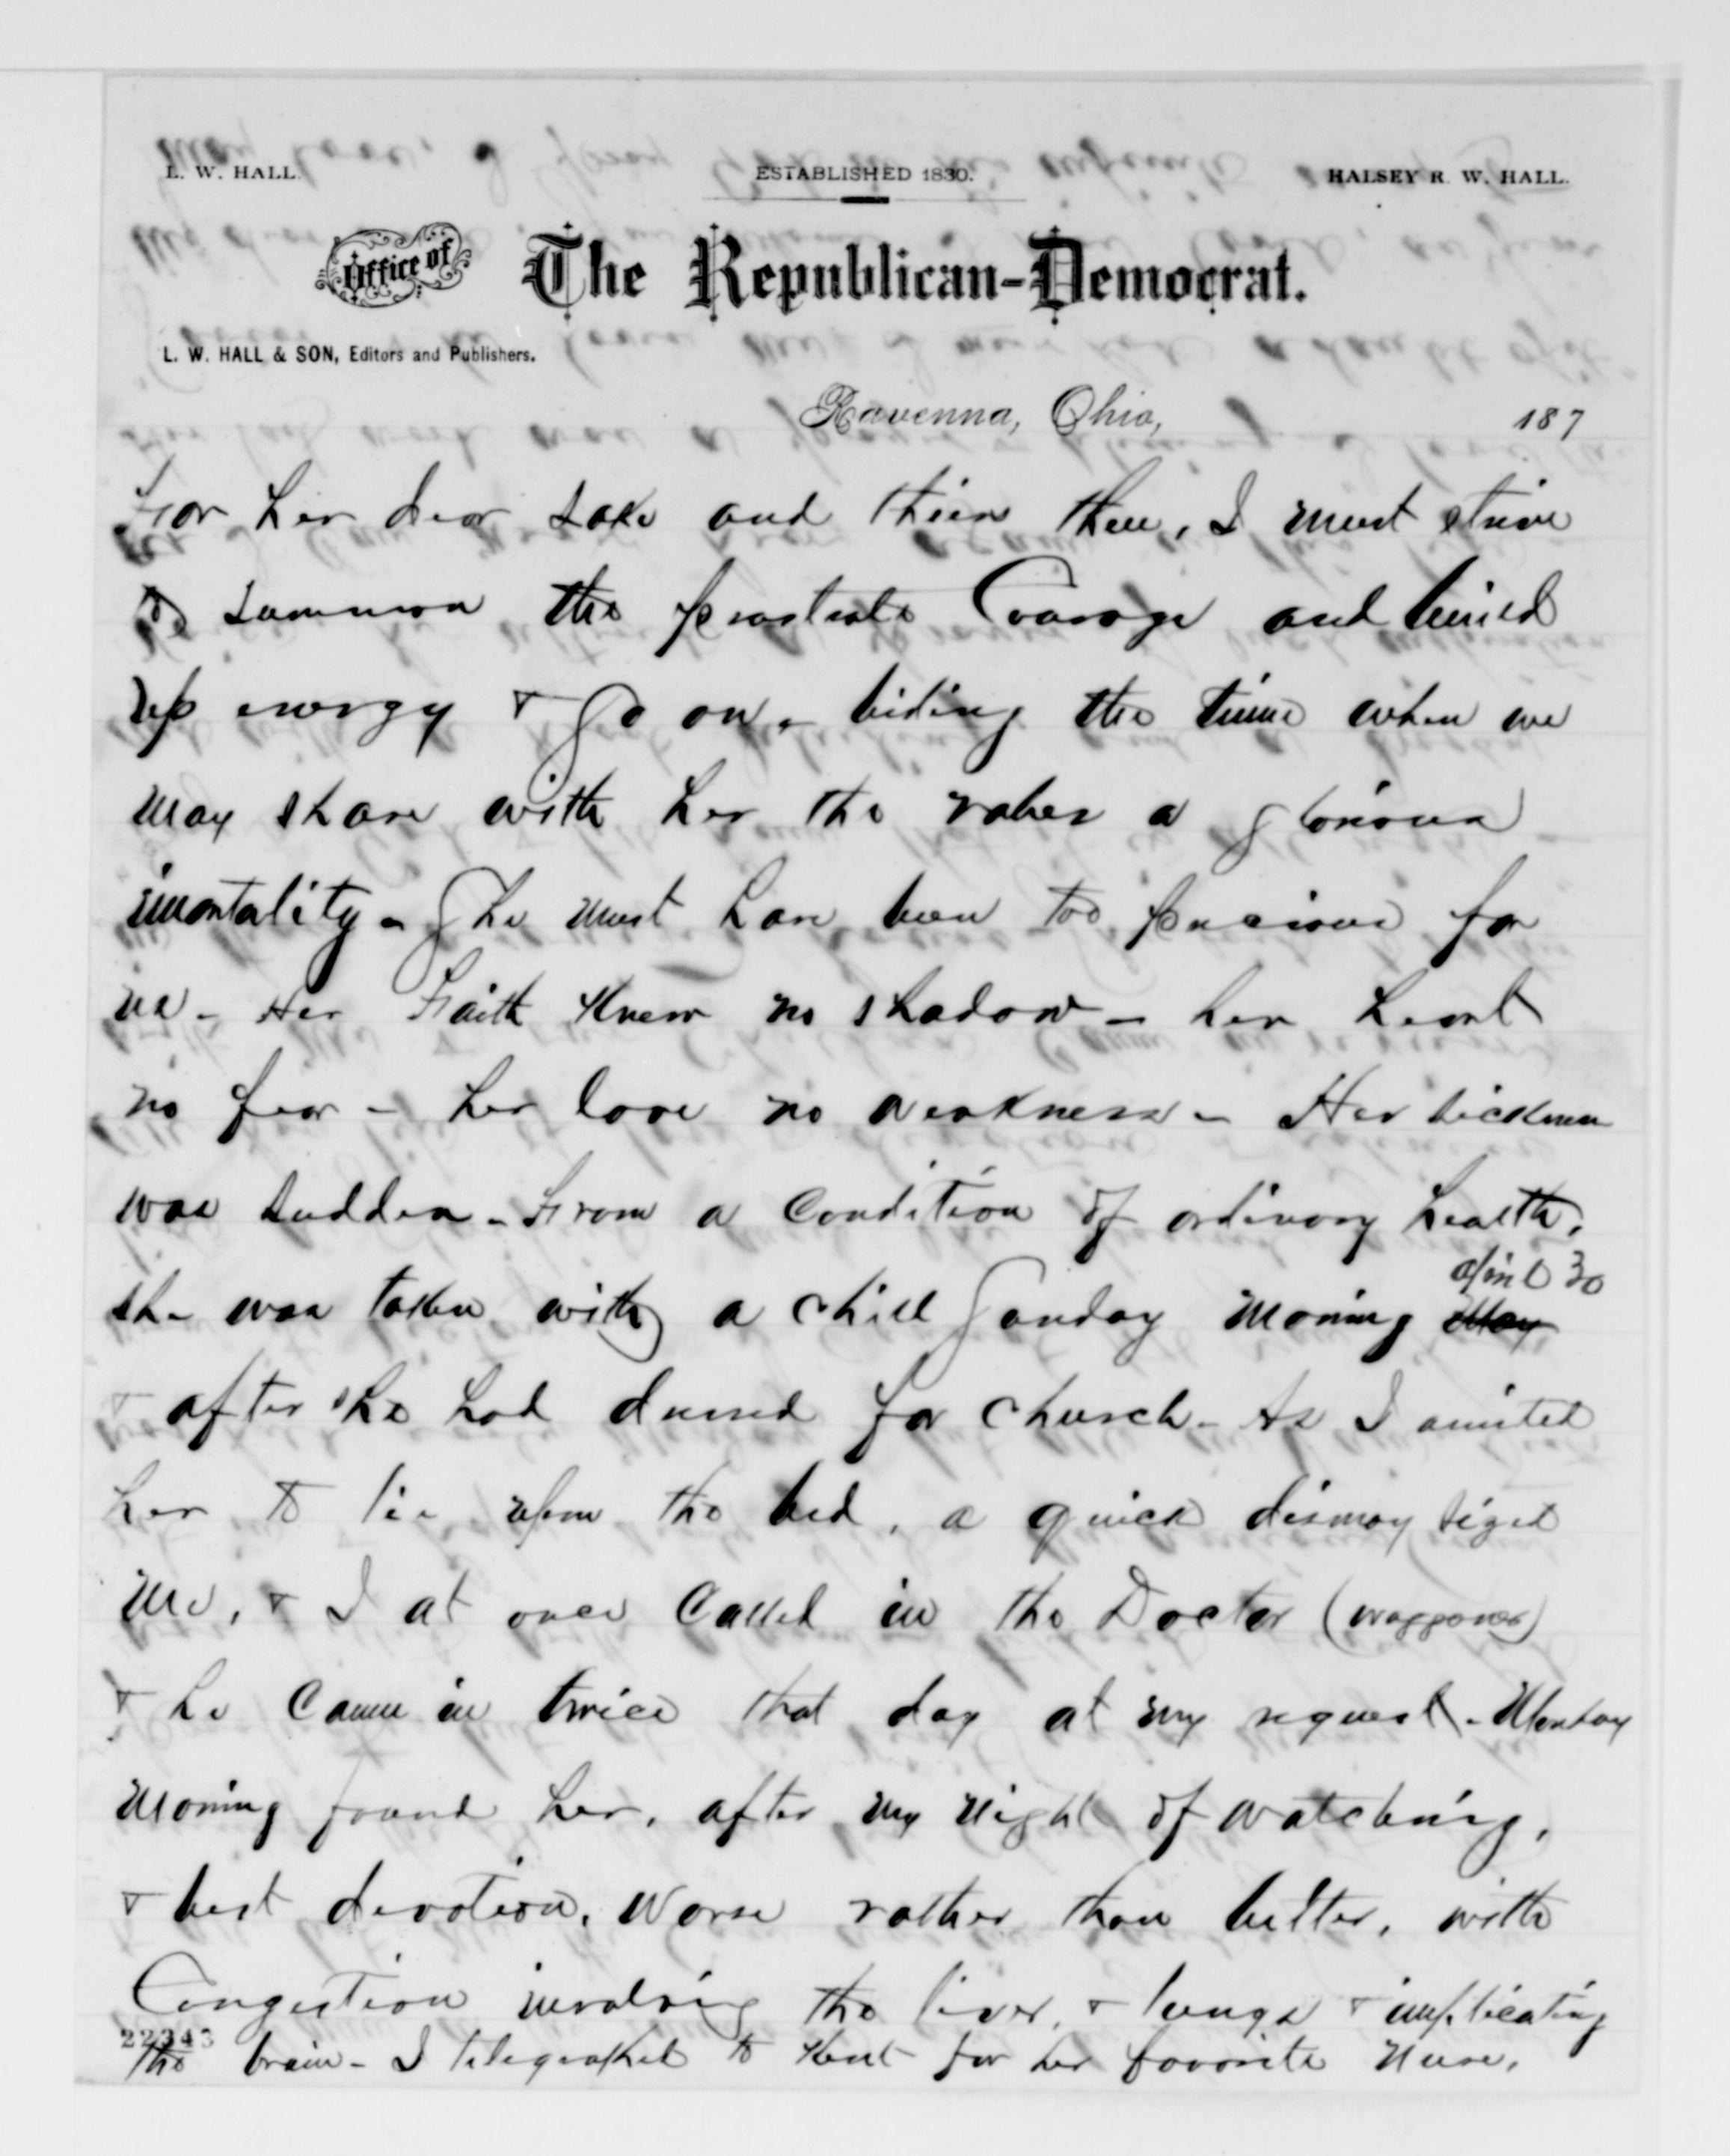 L. W. HALL.
ESTABLISHED 1830.
HALSEY R. W. HALL.
Office of The Republican-Democrat.
L. W. HALL & SON, Editors and Publishers.
Ravenna, Ohio, 187
For her dear sake and theirs then, I must strive
to summon the prostrate Courage and build
up energy & go on, biding the time when we
may share with her the robes a glorious
imortality - She must have been too precious for
us - Her Faith Knew no shadow - her heart
no fear - her love no weakness - Her sickness
was sudden - From a Condition of ordinary health,
april 30
she was taken with a chill Sunday morning May
& after she had dressed for church - As I assisted
her to lie upon the bed, a quick dismay siezed
me, & I at once Called in the Doctor (Waggoner)
& he Came in twice that day at my request - Monday
morning found her, after my night of watching,
& best devotion, Worse rather than better, with
Congestion involving the liver, & lungs & implicating
22343
the brain - I telegraphed to Kent for her favorite nurse,